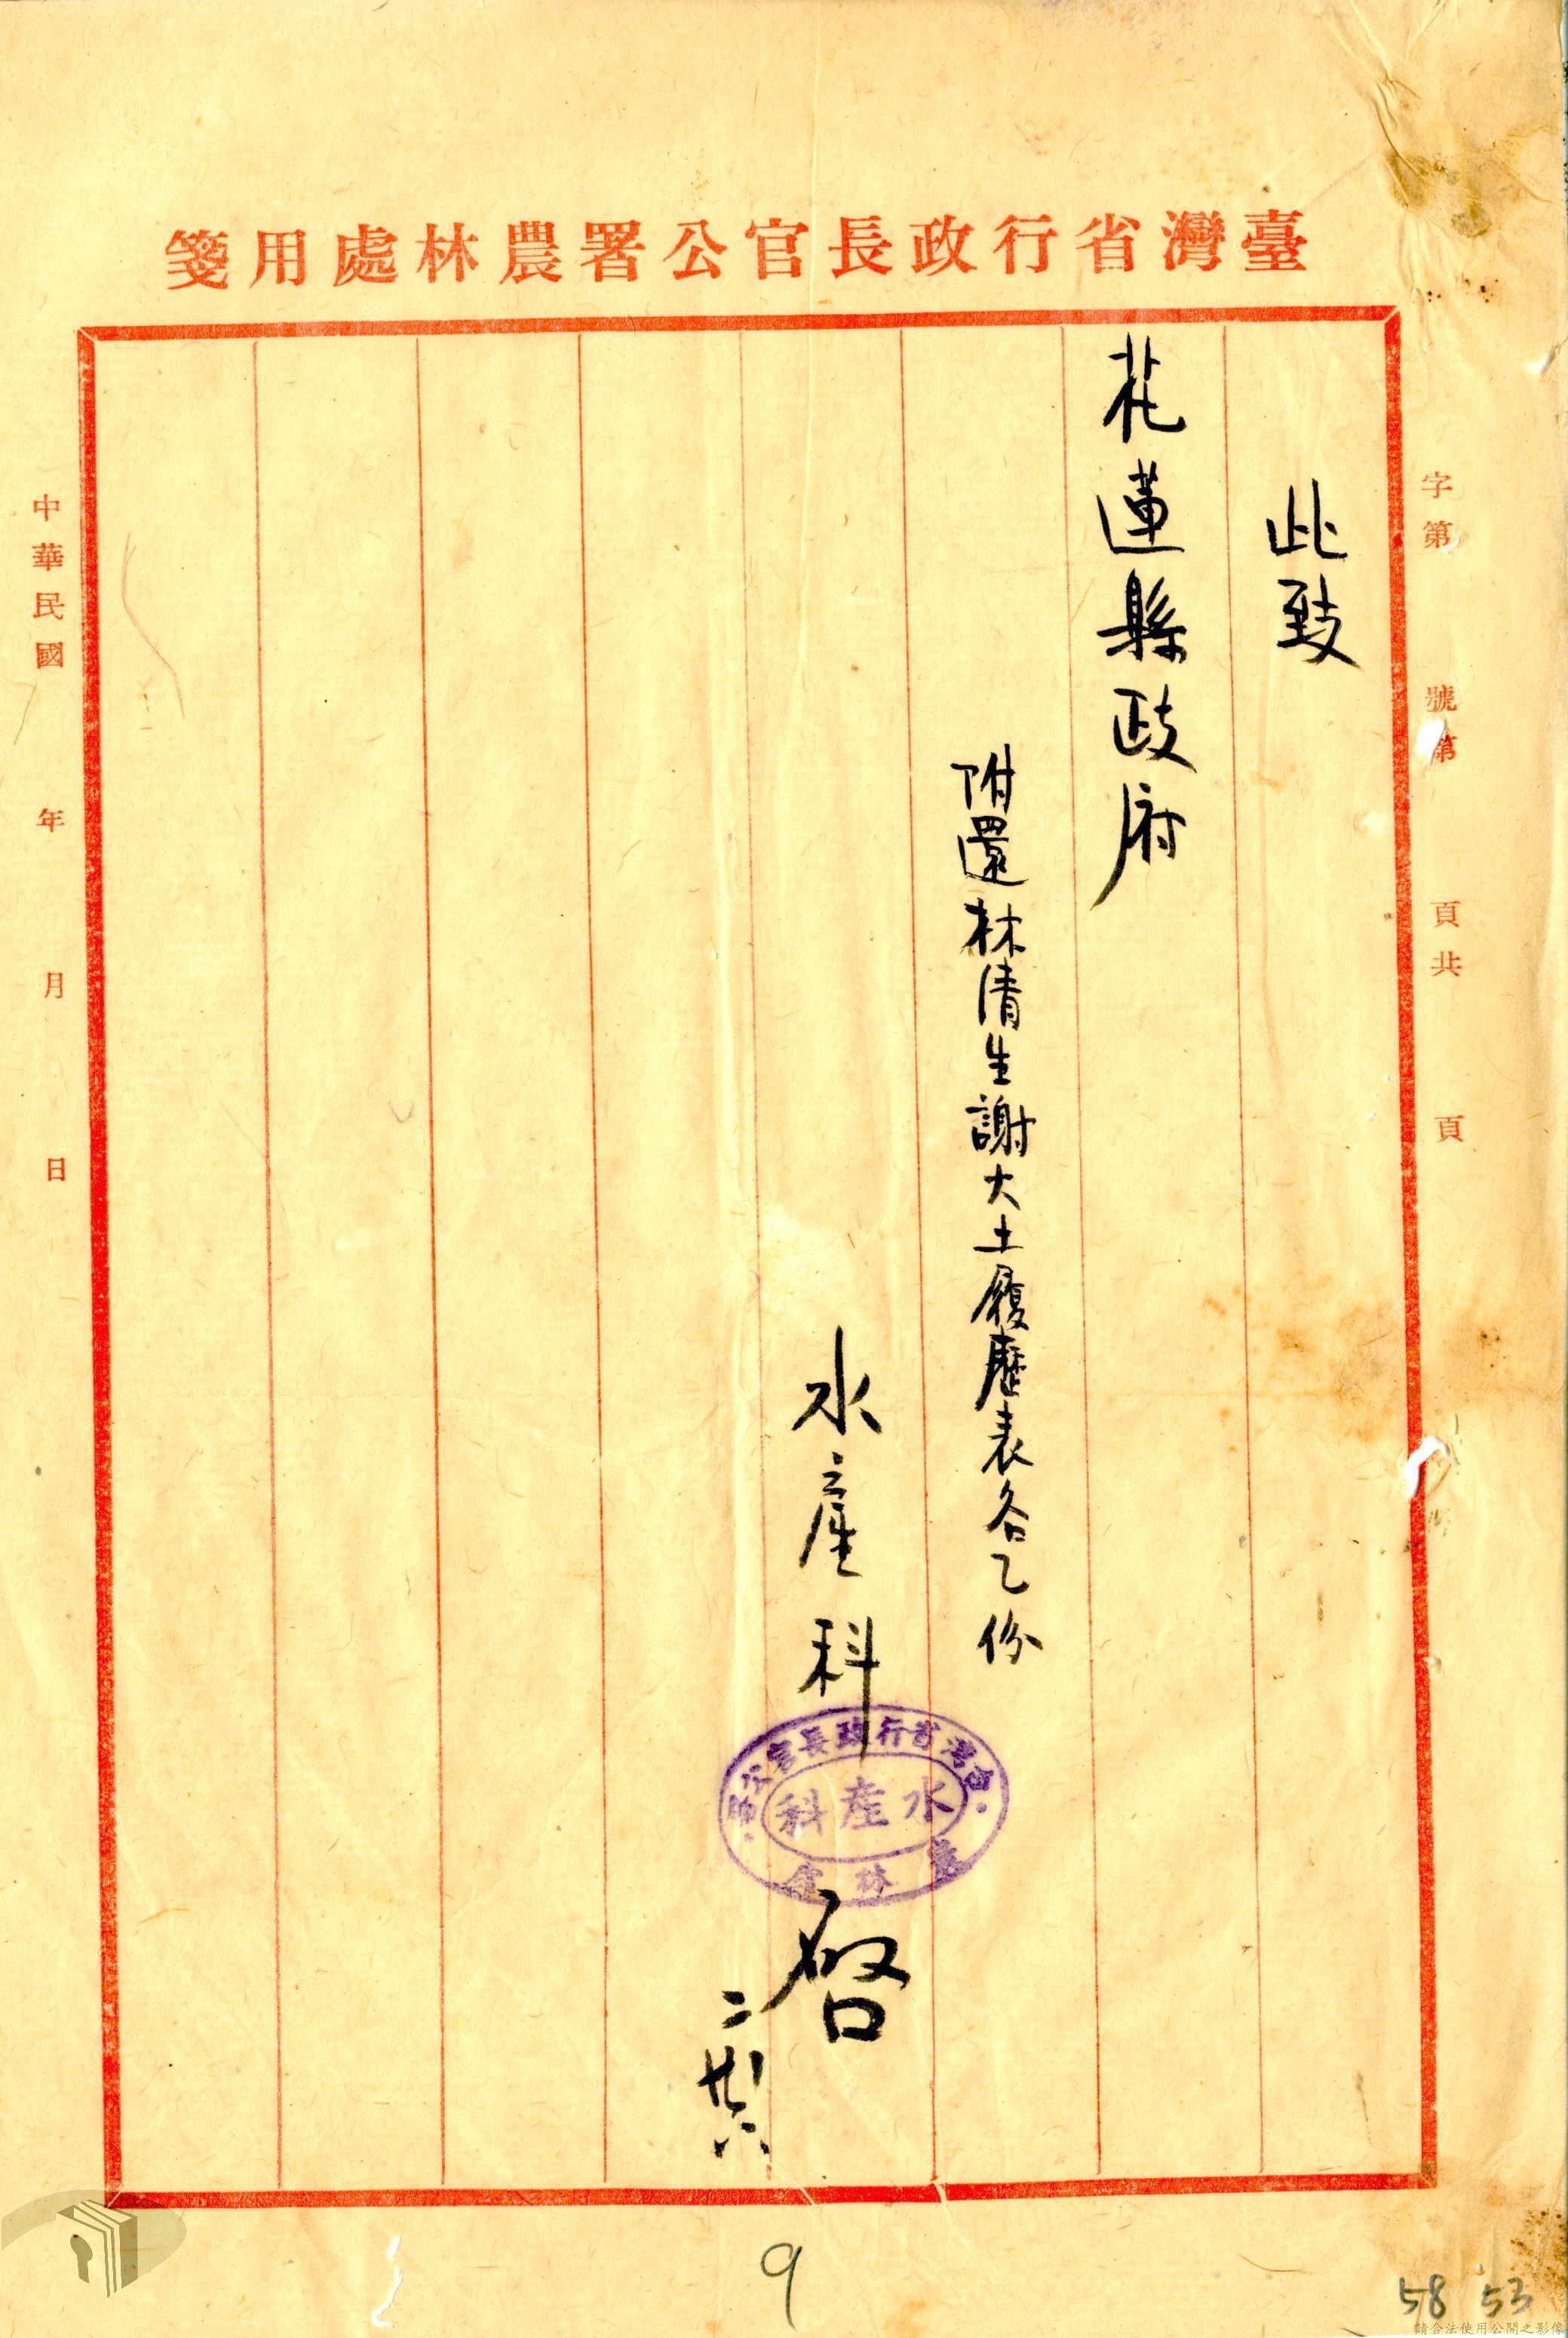 臺灣省行政長官公署農林處用箋
字第 號第 頁共 頁
此致
花蓮縣政府
附還林清生謝大土履歷表各乙份
水產科
臺灣省行政長官公署
水產科
農林處
啓
二
廿六
中華民國 年 月 日
9
58 53
請合法使用公開之影像